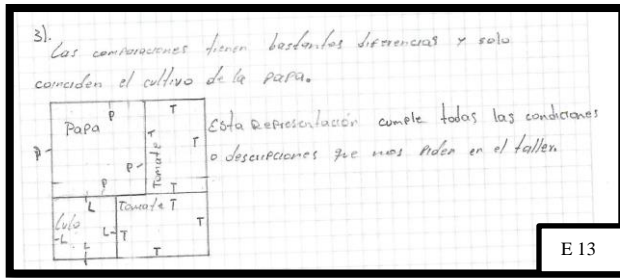 3).
Las comparaciones tienen bastantes diferencias y solo
coinciden el cultivo de la papa.
Papa P P P P
Tomate T T T T
Lulo L L L L
Tomate T T T T
Esta Representación cumple todas las condiciones
o descripciones que nos Piden en el taller.
E 13